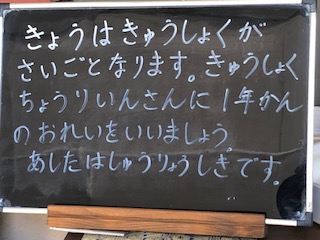 きょうはきゅうしょくが
さいごとなります。きゅうしょく
ちょうりいんさんに1年かん
のおれいをいいましょう。
あしたはしゅうりょうしきです。